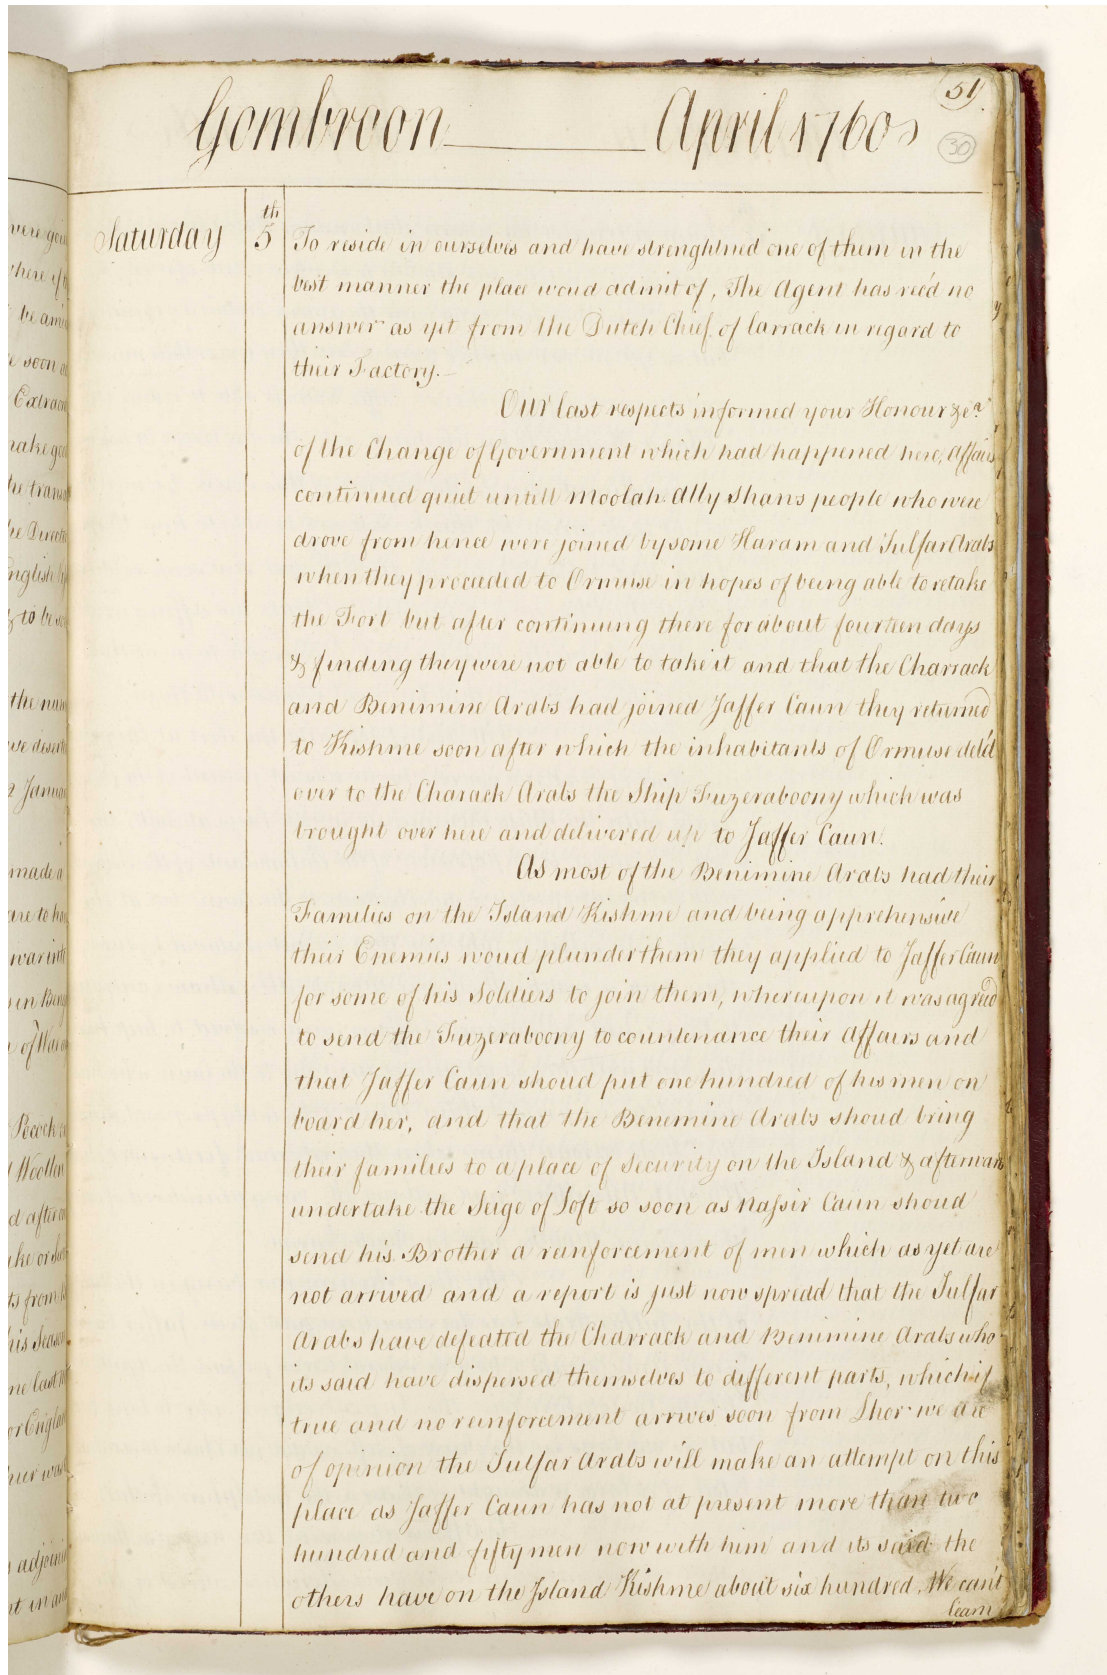 51
30
Gombroon April 1760
Saturday 5th To reside in ourselves and have strenghtned one of them in the
best manner the place woud admit of, The Agent has rec'd no
answer as yet from the Dutch Chief of Carrack in regard to
their Factory.
Our last respects informed your Honour &ca
of the Change of Government which had happened here, Affairs
continued quiet untill Moolah Ally Shans people who were
drove from hence were joined by some Haram and Julfar Arabs
when they proceeded to Ormuse in hopes of being able to retake
the Fort but after continuing there for about fourteen days
& finding they were not able to take it and that the Charrack
and Benimine Arabs had joined Jaffer Caun they returned
to Kishme soon after which the inhabitants of Ormuse del'd
over to the Charack Arabs the Ship Fuzeraboony which was
brought over here and delivered up to Jaffer Caun.
As most of the Benimine Arabs had their
Families on the Island Kishme and being apprehensive
their Enemies woud plunder them they applied to Jaffer Caun
for some of his Soldiers to join them, whereupon it was agreed
to send the Fuzeraboony to countenance their Affairs and
that Jaffer Caun shoud put one hundred of his men on
board her, and that the Benemine Arabs shoud bring
their families to a place of Security on the Island & afterwards
undertake the Seige of Loft so soon as Nassir Caun shoud
send his Brother a ranforcement of men which as yet are
not arrived and a report is just now spredd that the Julfar
Arabs have defeated the Charrack and Benimine Arabs who
its said have dispersed themselves to different parts, which if
true and no reinforcement arrives soon from Lhor we are
of opinion the Julfar Arabs will make an attempt on this
place as Jaffer Caun has not at present more than two
hundred and fifty men now with him and its said the
others have on the Island Kishme about six hundred. We can't
learn